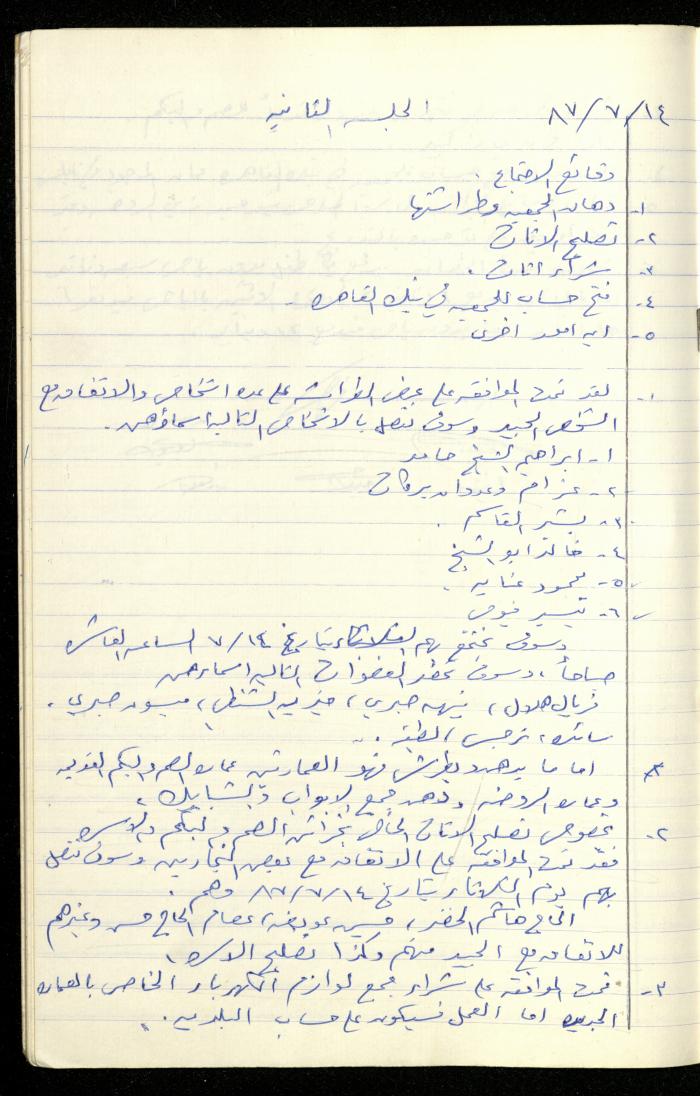 ٨٧/٧/١٤ الجلسه الثانيه
وقائع الاجتماع .
١- دهان الجمعيه وطراشتها
٢- تصليح الاثاث
٣- شراء اثاث .
٤- فتح حساب للجمعيه في بنك القاهره .
٥- ايه امور اخرى
١- لقد تمت الموافقه على عرض الطراشه على عده اشخاص والاتفاق مع
الشخص الجيد وسوف نتصل بالاشخاص التاليه اسماؤهن .
١- ابراهيم الشيخ حامد
٢- عزام وعدوان برقان
٣- بشير القاسم .
٤- خالد ابو الشيخ
٥- محمود عنايه
٦- تيسير
وسوف نجتمع بهم الثلاثاء بتاريخ ٧/١٤ الساعه العاشره
صباحاً ، وسوف تحضر العضوات التاليه اسمائهن
فريال هلال ، نزيهه صبري ، خيريه الشنطي ، ميسون صبري ،
سائده ، نرجس الطيبه .
اما ما يدهن ويطرش فهو العمارتين عماره الصم والبكم القديمه
وعماره الروضه ودهن جميع الابواب والشبابيك .
٢- بخصوص تصليح الاثاث الخاص بخزائن الصم والبكم والاسره
فقد تمت الموافقه على الاتفاق مع بعض النجارين وسوف نتصل
بهم يوم الثلاثاء بتاريخ ٨٧/٧/١٤ وهم .
الحاج هاشم الخضر ، حسين عويضه ، عصام الحاج حسن وغيرهم
للاتفاق مع الجيد منهم وكذا تصليح الاسره .
٣- تمت الموافقه على شراء جميع لوازم الكهرباء الخاص بالعماره
الجديده اما العمل فسيكون على حساب البلديه .